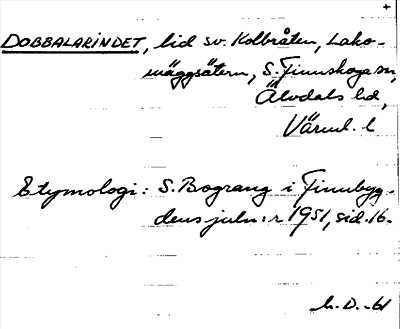 DOBBALARINDET, lid sv. Kolbråten, Lako-
mäggsätern, S. Finnskoga sn,
Älvdals hd,
Värml. l
Etymologi: S. Bograng i Finnbyg-
dens juln:r 1951, sid. 16.
h. D. -61